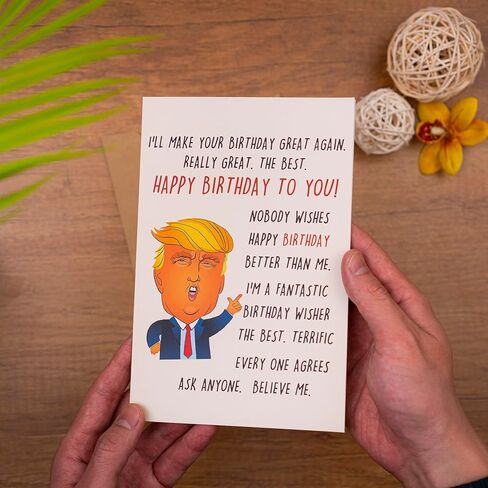 I'LL MAKE YOUR BIRTHDAY GREAT AGAIN.
REALLY GREAT. THE BEST.
HAPPY BIRTHDAY TO YOU!
NOBODY WISHES
HAPPY BIRTHDAY
BETTER THAN ME.
I'M A FANTASTIC
BIRTHDAY WISHER
THE BEST. TERRIFIC
EVERY ONE AGREES
ASK ANYONE. BELIEVE ME.